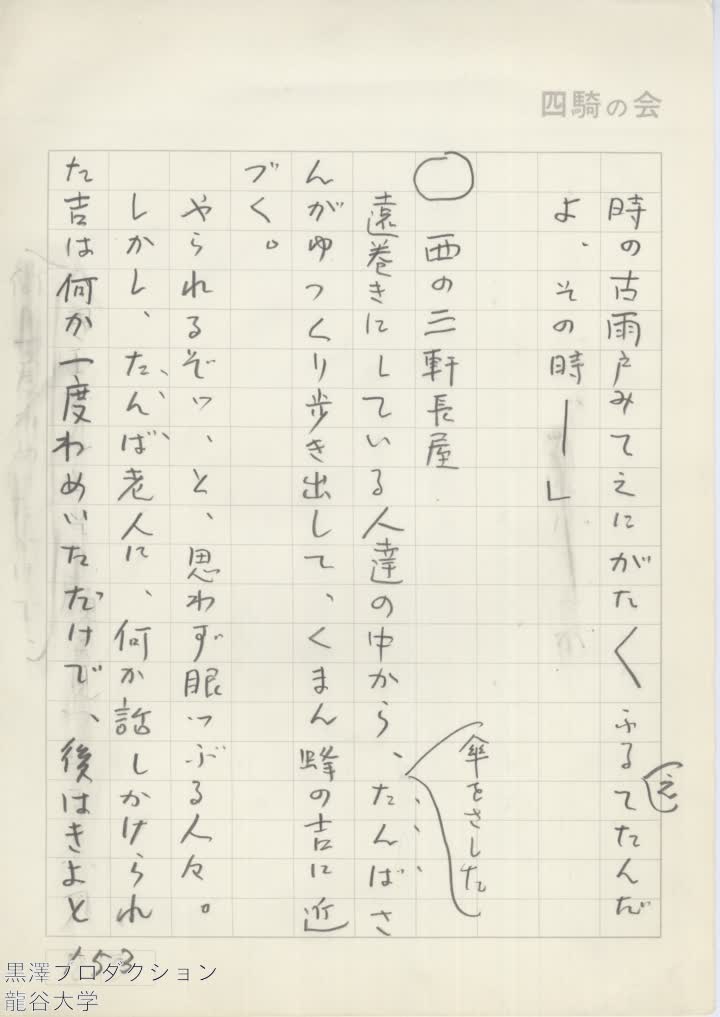 四騎の会
時の古雨戸みてえにがたく ふるえてたんだ
よ、その時―」
◯ 西の三軒長屋
遠巻きにしている人達の中から、傘をさしたたんばさ
んがゆっくり歩き出して、くまん蜂の吉に近
づく。
やられるぞッ、と、思わず眼つぶる人々。
しかし、たんば老人に、何か話しかけられ
た吉は何か一度わめいただけで、後はきよと
153
黒澤プロダクション
龍谷大学